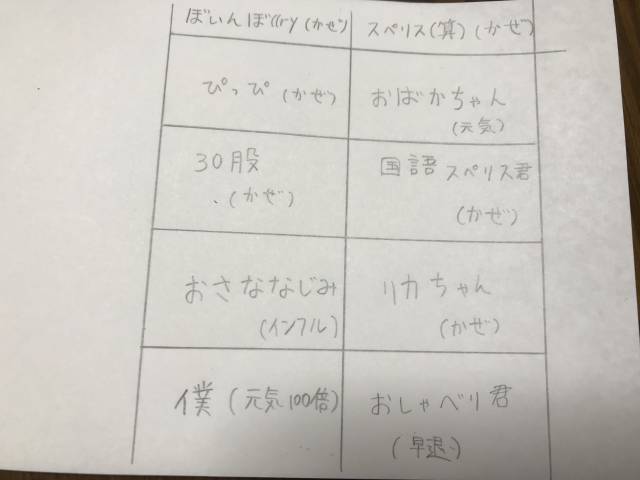 ぼいんぼ(((ry (かぜ) スペリス(算) (かぜ)
ぴっぴ (かぜ) おばかちゃん
(元気)
30股 国語 スペリス君
(かぜ) (かぜ)
おさななじみ リカちゃん
(インフル) (かぜ)
僕 (元気100倍) おしゃべり君
(早退)